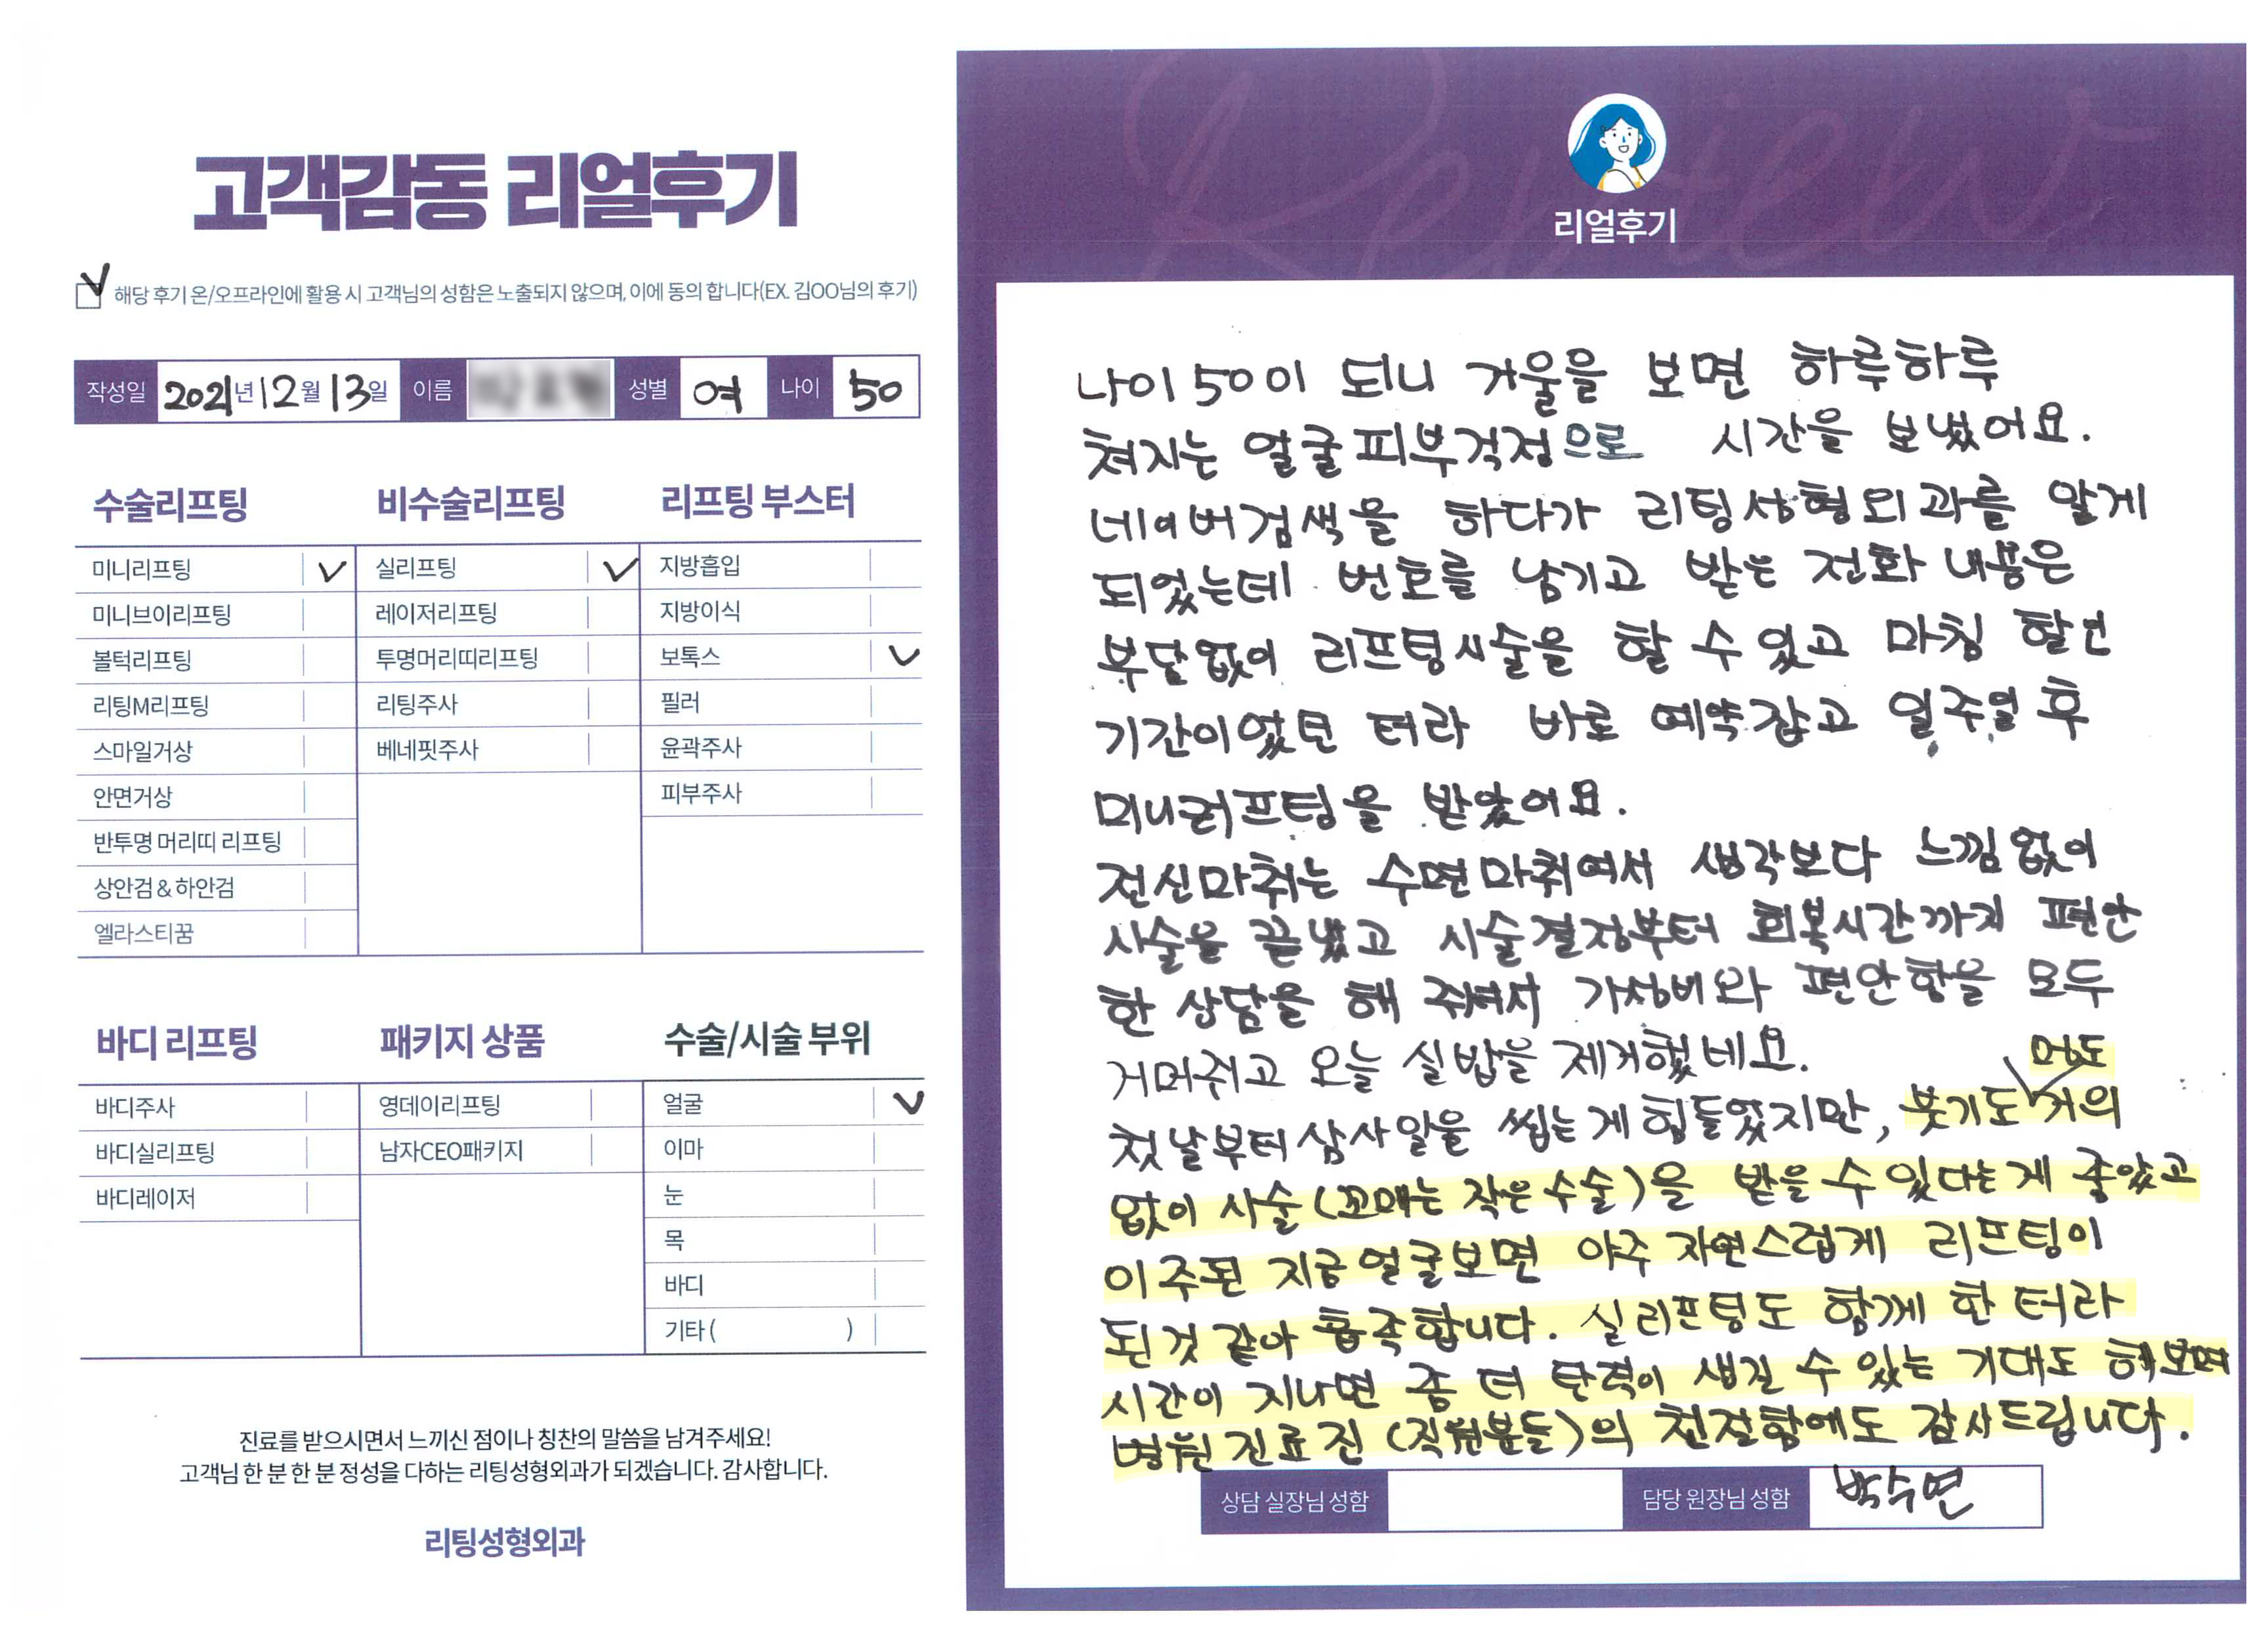 고객감동 리얼후기
해당 후기 온/오프라인에 활용 시 고객님의 성함은 노출되지 않으며, 이에 동의 합니다(EX. 김OO님의 후기)
작성일 2021년 12월 13일 이름 성별 여 나이 50
수술리프팅 비수술리프팅 리프팅 부스터
미니리프팅 실리프팅 지방흡입
미니브이리프팅 레이저리프팅 지방이식
볼턱리프팅 투명머리띠리프팅 보톡스
리팅M리프팅 리팅주사 필러
스마일거상 베네핏주사 윤곽주사
안면거상 피부주사
반투명 머리띠 리프팅
상안검&하안검
엘라스티꿈
바디 리프팅 패키지 상품 수술/시술 부위
바디주사 영데이리프팅 얼굴
바디실리프팅 남자CEO패키지 이마
바디레이저 눈
목
바디
기타( )
진료를 받으시면서 느끼신 점이나 칭찬의 말씀을 남겨주세요!
고객님 한 분 한 분 정성을 다하는 리팅성형외과가 되겠습니다. 감사합니다.
리팅성형외과
Review
리얼후기
나이 50이 되니 거울을 보면 하루하루
쳐지는 얼굴피부걱정으로 시간을 보냈어요.
네이버검색을 하다가 리팅성형외과를 알게
되었는데 번호를 남기고 받는 전화 내용은
부담없이 리프팅시술을 할 수 있고 마침 할인
기간이었던 터라 바로 예약잡고 일주일 후
미니리프팅을 받았어요.
전신마취는 수면마취여서 생각보다 느낌없이
시술을 끝냈고 시술결정부터 회복시간까지 편안
한 상담을 해 줘서 가성비와 편안함을 모두
거머쥐고 오늘 실밥을 제거했네요.
첫날부터 삼사일을 씹는게 힘들었지만, 붓기도 멍도 거의
없이 시술(꼬매는 작은수술)을 받을 수 있다는게 좋았고
이주된 지금 얼굴보면 아주 자연스럽게 리프팅이
된것 같아 흡족합니다. 실리프팅도 함께 한 터라
시간이 지나면 좀 더 탄력이 생길 수 있는 기대도 해보며
병원 진료진 (직원분들)의 친절함에도 감사드립니다.
상담 실장님 성함 담당 원장님 성함 박수연